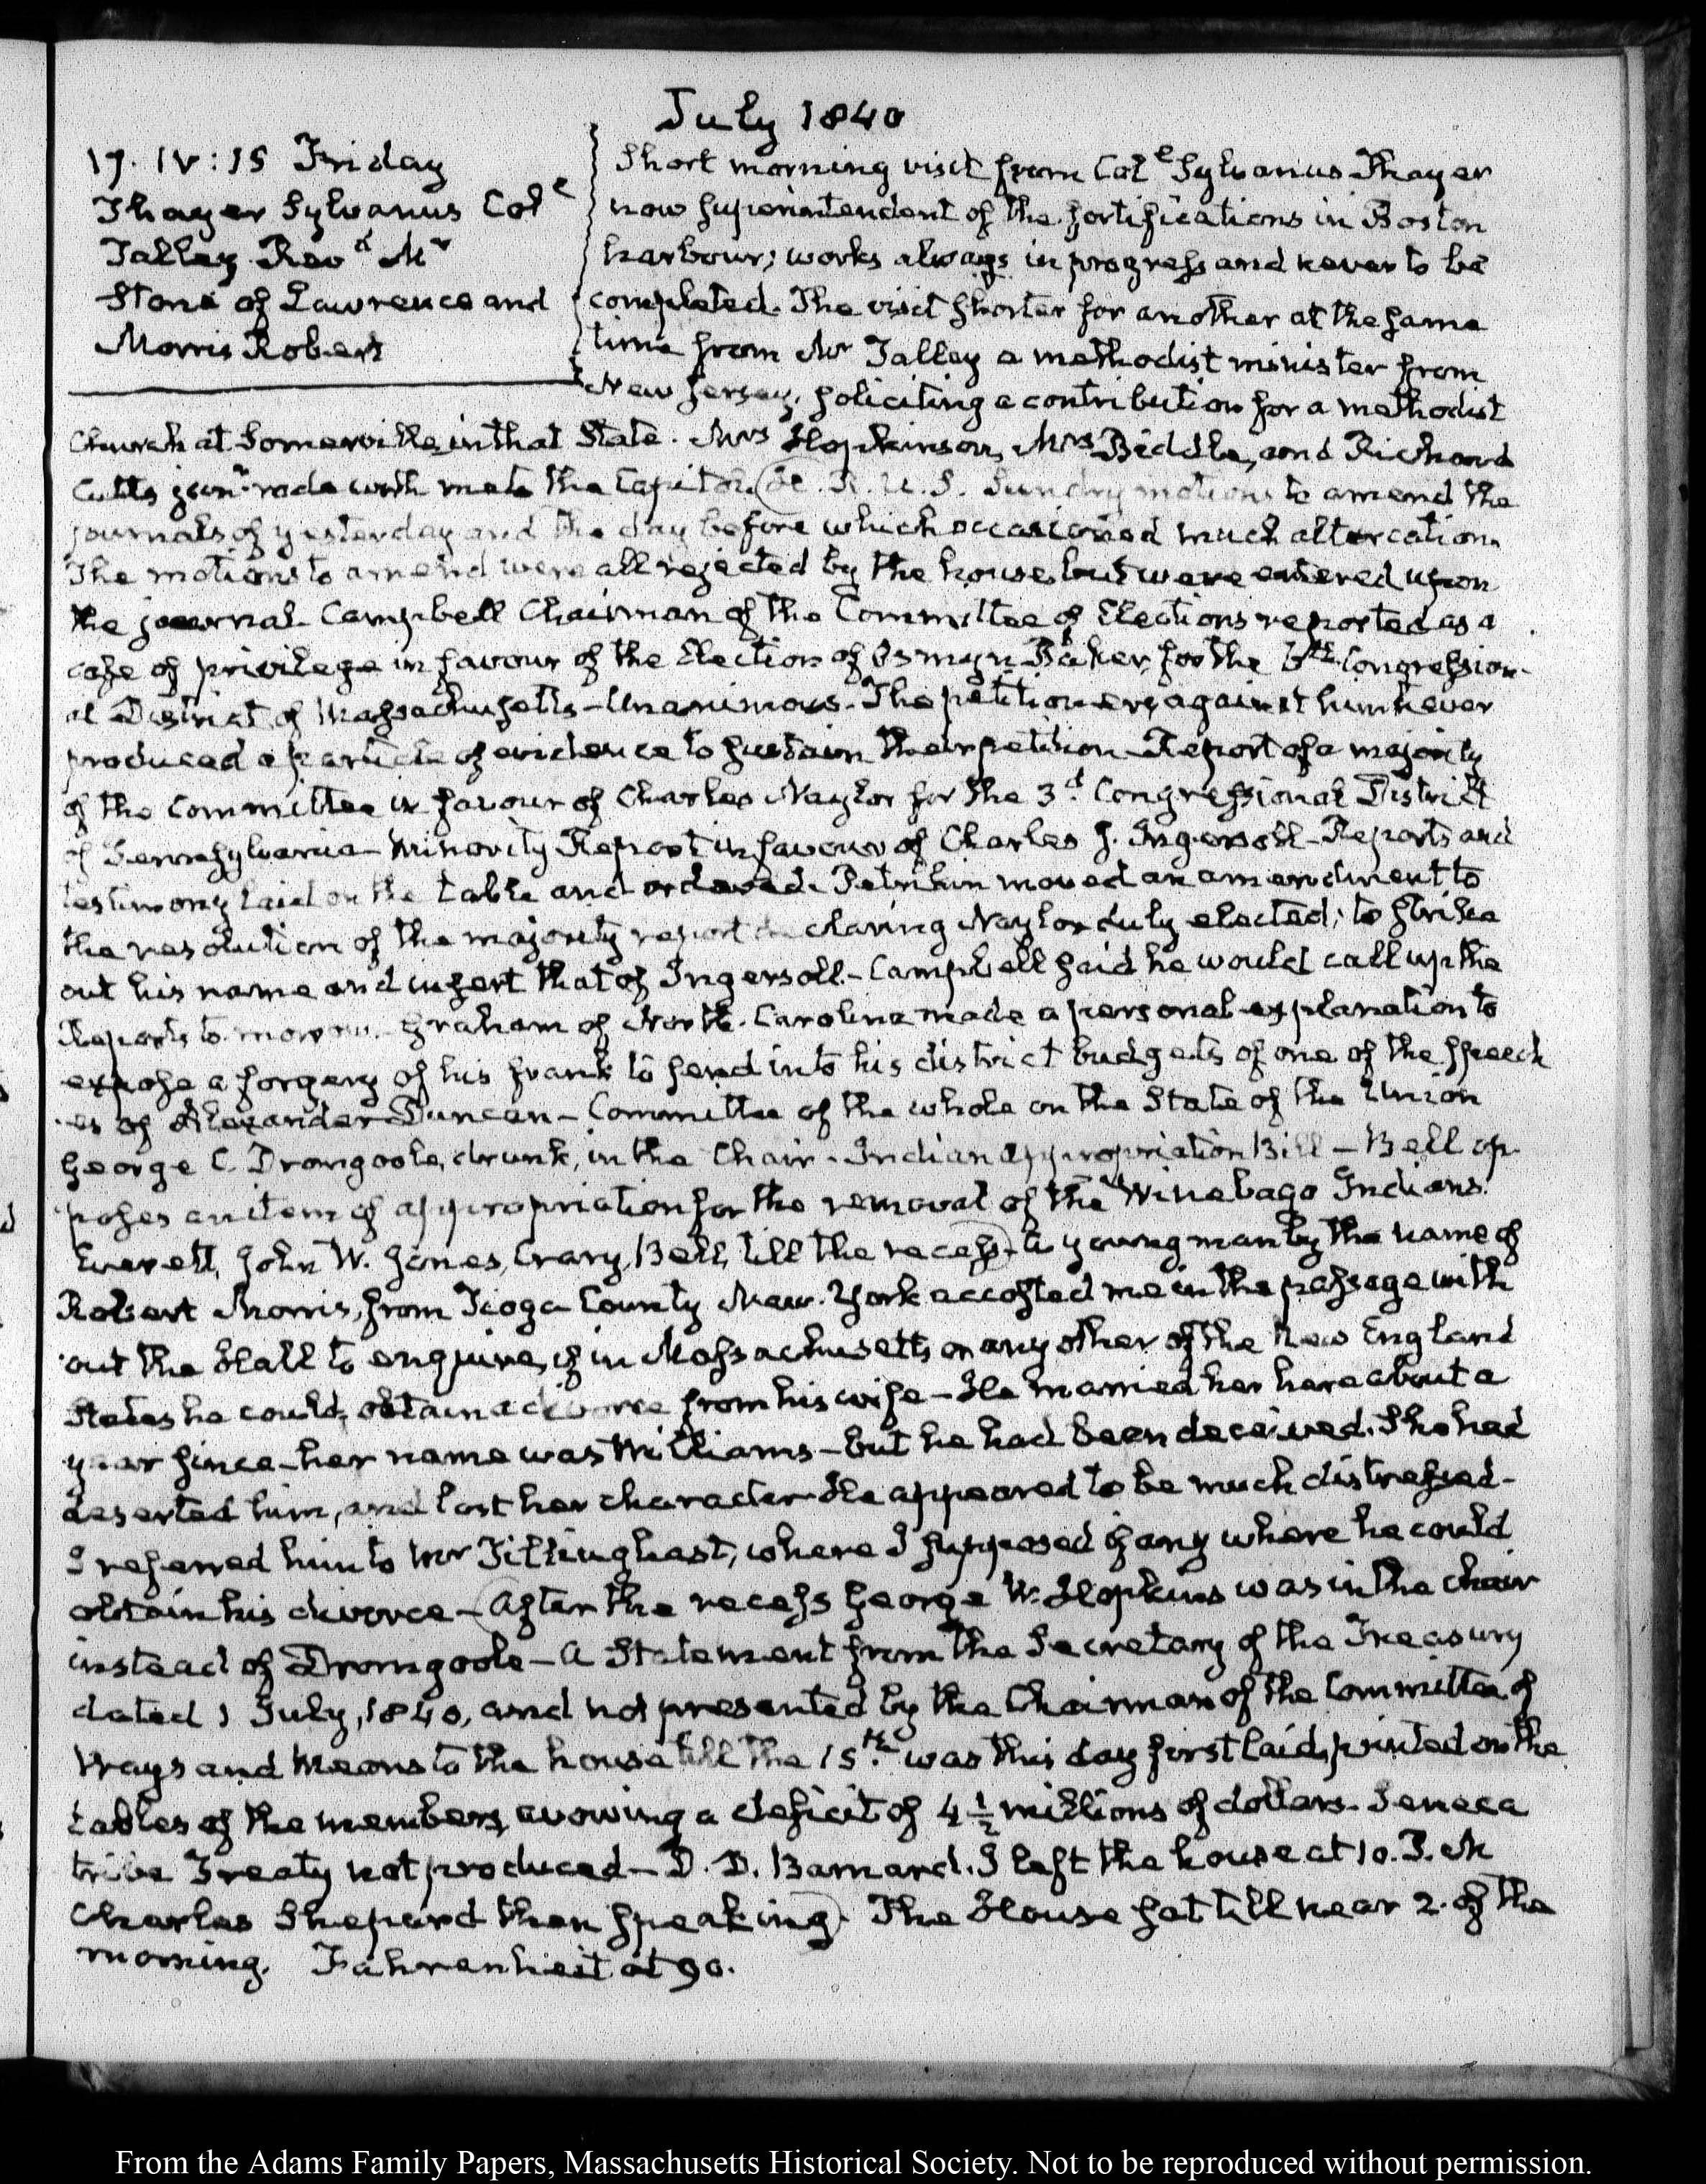 July 1840
17. IV:15 Friday
Thayer Sylvanus Colᵉ
Talley Revᵈ Mʳ
Stone of Lawrence and
Morris Robert
Short morning visit from Colᵉ Sylvanus Thayer
now superintendent of the fortifications in Boston
harbour; works always in progress and never to be
completed. The visit shorter for another at the same
time from Mr Talley a methodist minister from
New Jersey, soliciting a contribution for a methodist
Church at Somerville in that State. Mrs Hopkinson, Mrs Biddle, and Richard
Cutts junr. rode with me to the Capitol. H. R. U. S. Sundry motions to amend the
journals of yesterday and the day before which occasioned much altercation.
The motions to amend were all rejected by the house but were entered upon
the journal. Campbell Chairman of the Committee of Elections reported as a
case of privilege in favour of the Election of Osmyn Baker, for the 6th. Congression-
al District of Massachusetts – Unanimous. The petitioners against him never
produced a particle of evidence to sustain their petition – Report of a majority
of the Committee in favour of Charles Naylor for the 3d. Congressional District
of Pennsylvania – Minority Report in favour of Charles J. Ingersoll – Reports and
testimony laid on the table and ordered. Petrikin moved an amendment to
the resolution of the majority report declaring Naylor duly elected; to strike
out his name and insert that of Ingersoll – Campbell said he would call up the
Reports to-morrow. Graham of North-Carolina made a personal explanation to
expose a forgery of his frank to send into his district budgets of one of the speech
es of Alexander Duncan – Committee of the whole on the State of the Union
George C. Dromgoole, drunk, in the Chair – Indian appropriation Bill – Bell op-
poses an item of appropriation for the removal of the Winebago Indians.
Everett, John W. Jones, Crary, Bell, till the recess. A young man by the name of
Robert Morris, from Tioga County New-York accosted me in the passage with
out the Hall to enquire, if in Massachusetts or any other of the New England
States he could obtain a divorce from his wife – He married her here about a
year since – her name was Williams – but he had been deceived. She had
deserted him, and lost her character. He appeared to be much distressed –
I referred him to Mr Tillinghast, where I supposed if any where he could
obtain his divorce – After the recess George W. Hopkins was in the chair
instead of Dromgoole – A Statement from the Secretary of the Treasury
dated 1 July, 1840, and not presented by the Chairman of the Committee of
Ways and Means to the house till the 15th. was this day first laid, printed on the
tables of the members, avowing a deficit of 4 1/2 millions of dollars. Seneca
tribe Treaty not produced – D. D. Barnard. I left the house at 10. P. M
Charles Shepard then speaking. The House sat till near 2. of the
morning. Fahrenheit at 90.
From the Adams Family Papers, Massachusetts Historical Society. Not to be reproduced without permission.